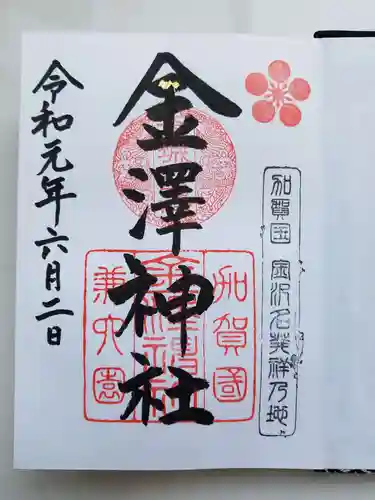 加賀国 金沢名発祥乃地
金澤神社
加賀國
兼六園
令和元年六月二日